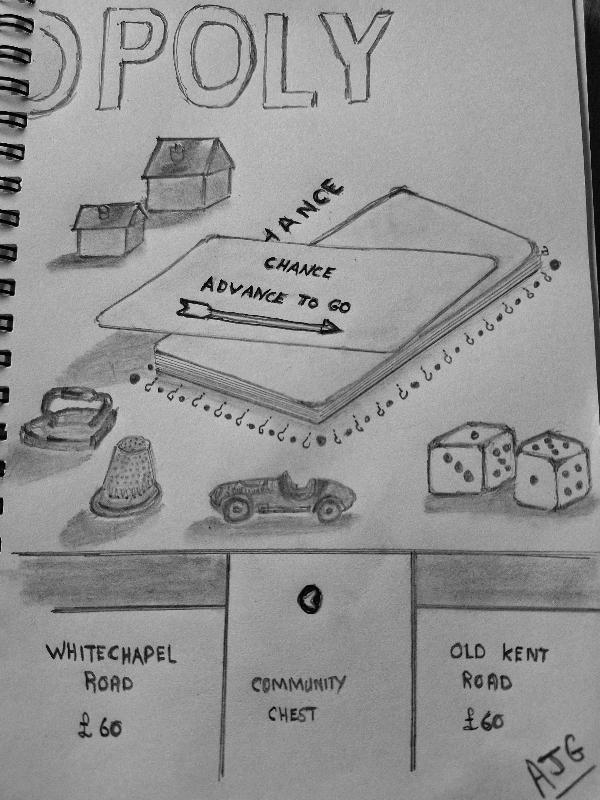 OPOLY
HANCE
CHANCE
ADVANCE TO GO
WHITECHAPEL
ROAD
£60
COMMUNITY
CHEST
OLD KENT
ROAD
£60
AJG